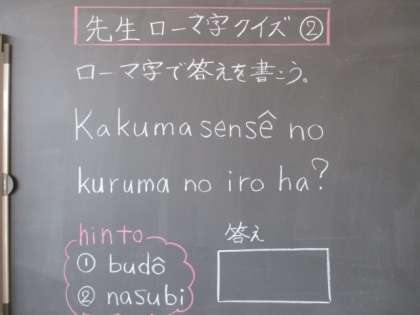 先生ローマ字クイズ②
ローマ字で答えを書こう。
Kakuma sensê no
kuruma no iro ha?
hinto
① budô
② nasubi
答え